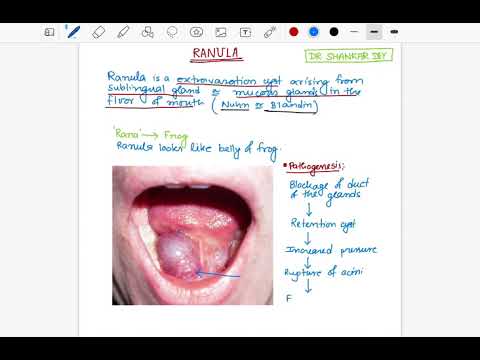 RANULA
DR SHANKAR DEY
Ranula is a extravasation cyst arising from
sublingual gland or mucous glands in the
floor of mouth (Nuhn or Blandin)
'Rana' → Frog
Ranula looks like belly of frog.
• Pathogenesis:
Blockage of duct
of the glands
↓
Retention cyst
↓
Increased pressure
↓
Rupture of acini
↓
E